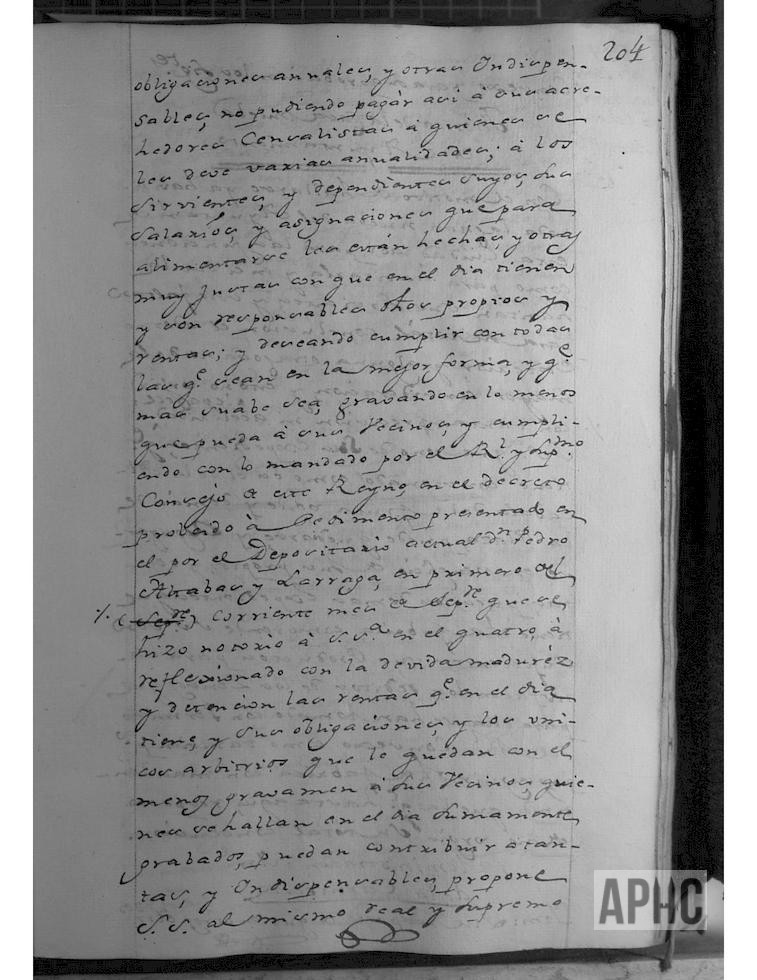 204
obligaciones annales, y otras Yndispen-
sables, no pudiendo pagár asi á sus acre-
hedores Censalistas á quienes se
les deve varias annualidades; á los
Sirvientes, y dependientes suyos, sus
Salarios, y asignaciones que para
alimentarse les están hechas, y otras
muy justas con que en el dia tienen
y son responsables dhos propios y
rentas; y deseando cumplir con todas
las q.e sean en la mejor forma, y q.e
mas suabe sea, gravando en lo menos
que pueda á sus Vecinos, y cumpli-
endo con lo mandado por el R.l y Sup.mo
Consejo de este Reyno, en el decreto
probeido à Pedimento presentado en
el por el Depositario actual d.n Pedro
Altabas y Larraga, en primero del
/. (Sep.re) corriente mes de Sep.re que se
hizo notorio á S.S.a en el quatro, à
reflexionado con la devida maduréz
y detencion las rentas q.e en el dia
tiene, y sus obligaciones, y los uni-
cos arbitrios que le quedan con el
menos gravamen á sus Vecinos, quie-
nes se hallan en el dia sumamente
grabados, puedan contribuir a tan-
tas, y Yndispensables, propone
S.S. al mismo real y Supremo
APHC